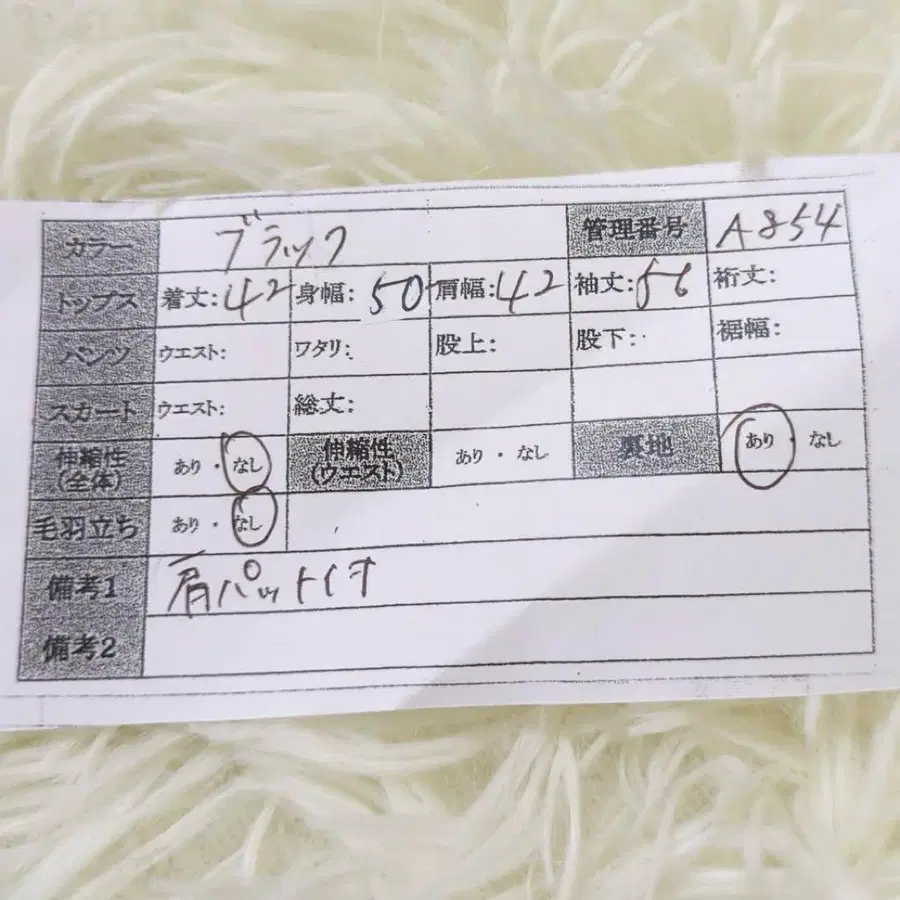 カラー ブラック 管理番号 A854
トップス 着丈:42 身幅:50 肩幅:42 袖丈:56 裄丈:
パンツ ウエスト: ワタリ: 股上: 股下: 裾幅:
スカート ウエスト: 総丈:
伸縮性(全体) あり・なし 伸縮性(ウエスト) あり・なし 裏地 あり・なし
毛羽立ち あり・なし
備考1 肩パット付
備考2